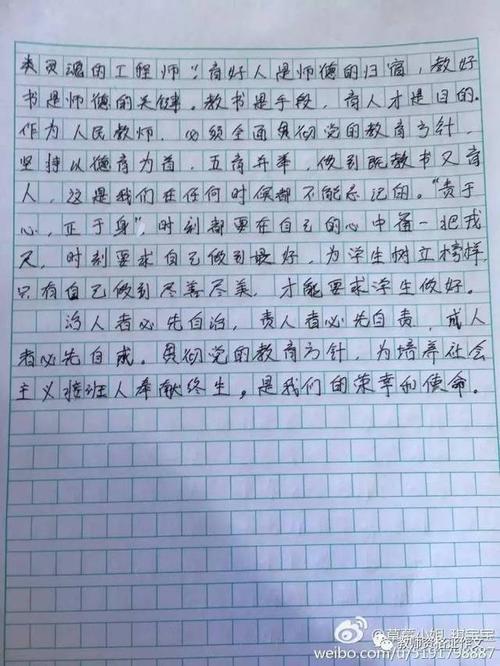 类灵魂的工程师"。育好人是师德的归宿，教好
书是师德的关键。教书是手段，育人才是目的。
作为人民教师，必须全面贯彻党的教育方针，
坚持以德育为首，五育并举，做到既教书又育
人，这是我们在任何时候都不能忘记的。"责于
心，正于身"，时刻都要在自己的心中留一把戒
尺，时刻要求自己做到最好，为学生树立榜样，
只有自己做到尽善尽美，才能要求学生做好。
治人者必先自治，责人者必先自责，成人
者必先自成。贯彻党的教育方针，为培养社会
主义接班人奉献终生，是我们的荣幸和使命。
weibo.com/u/3191798887